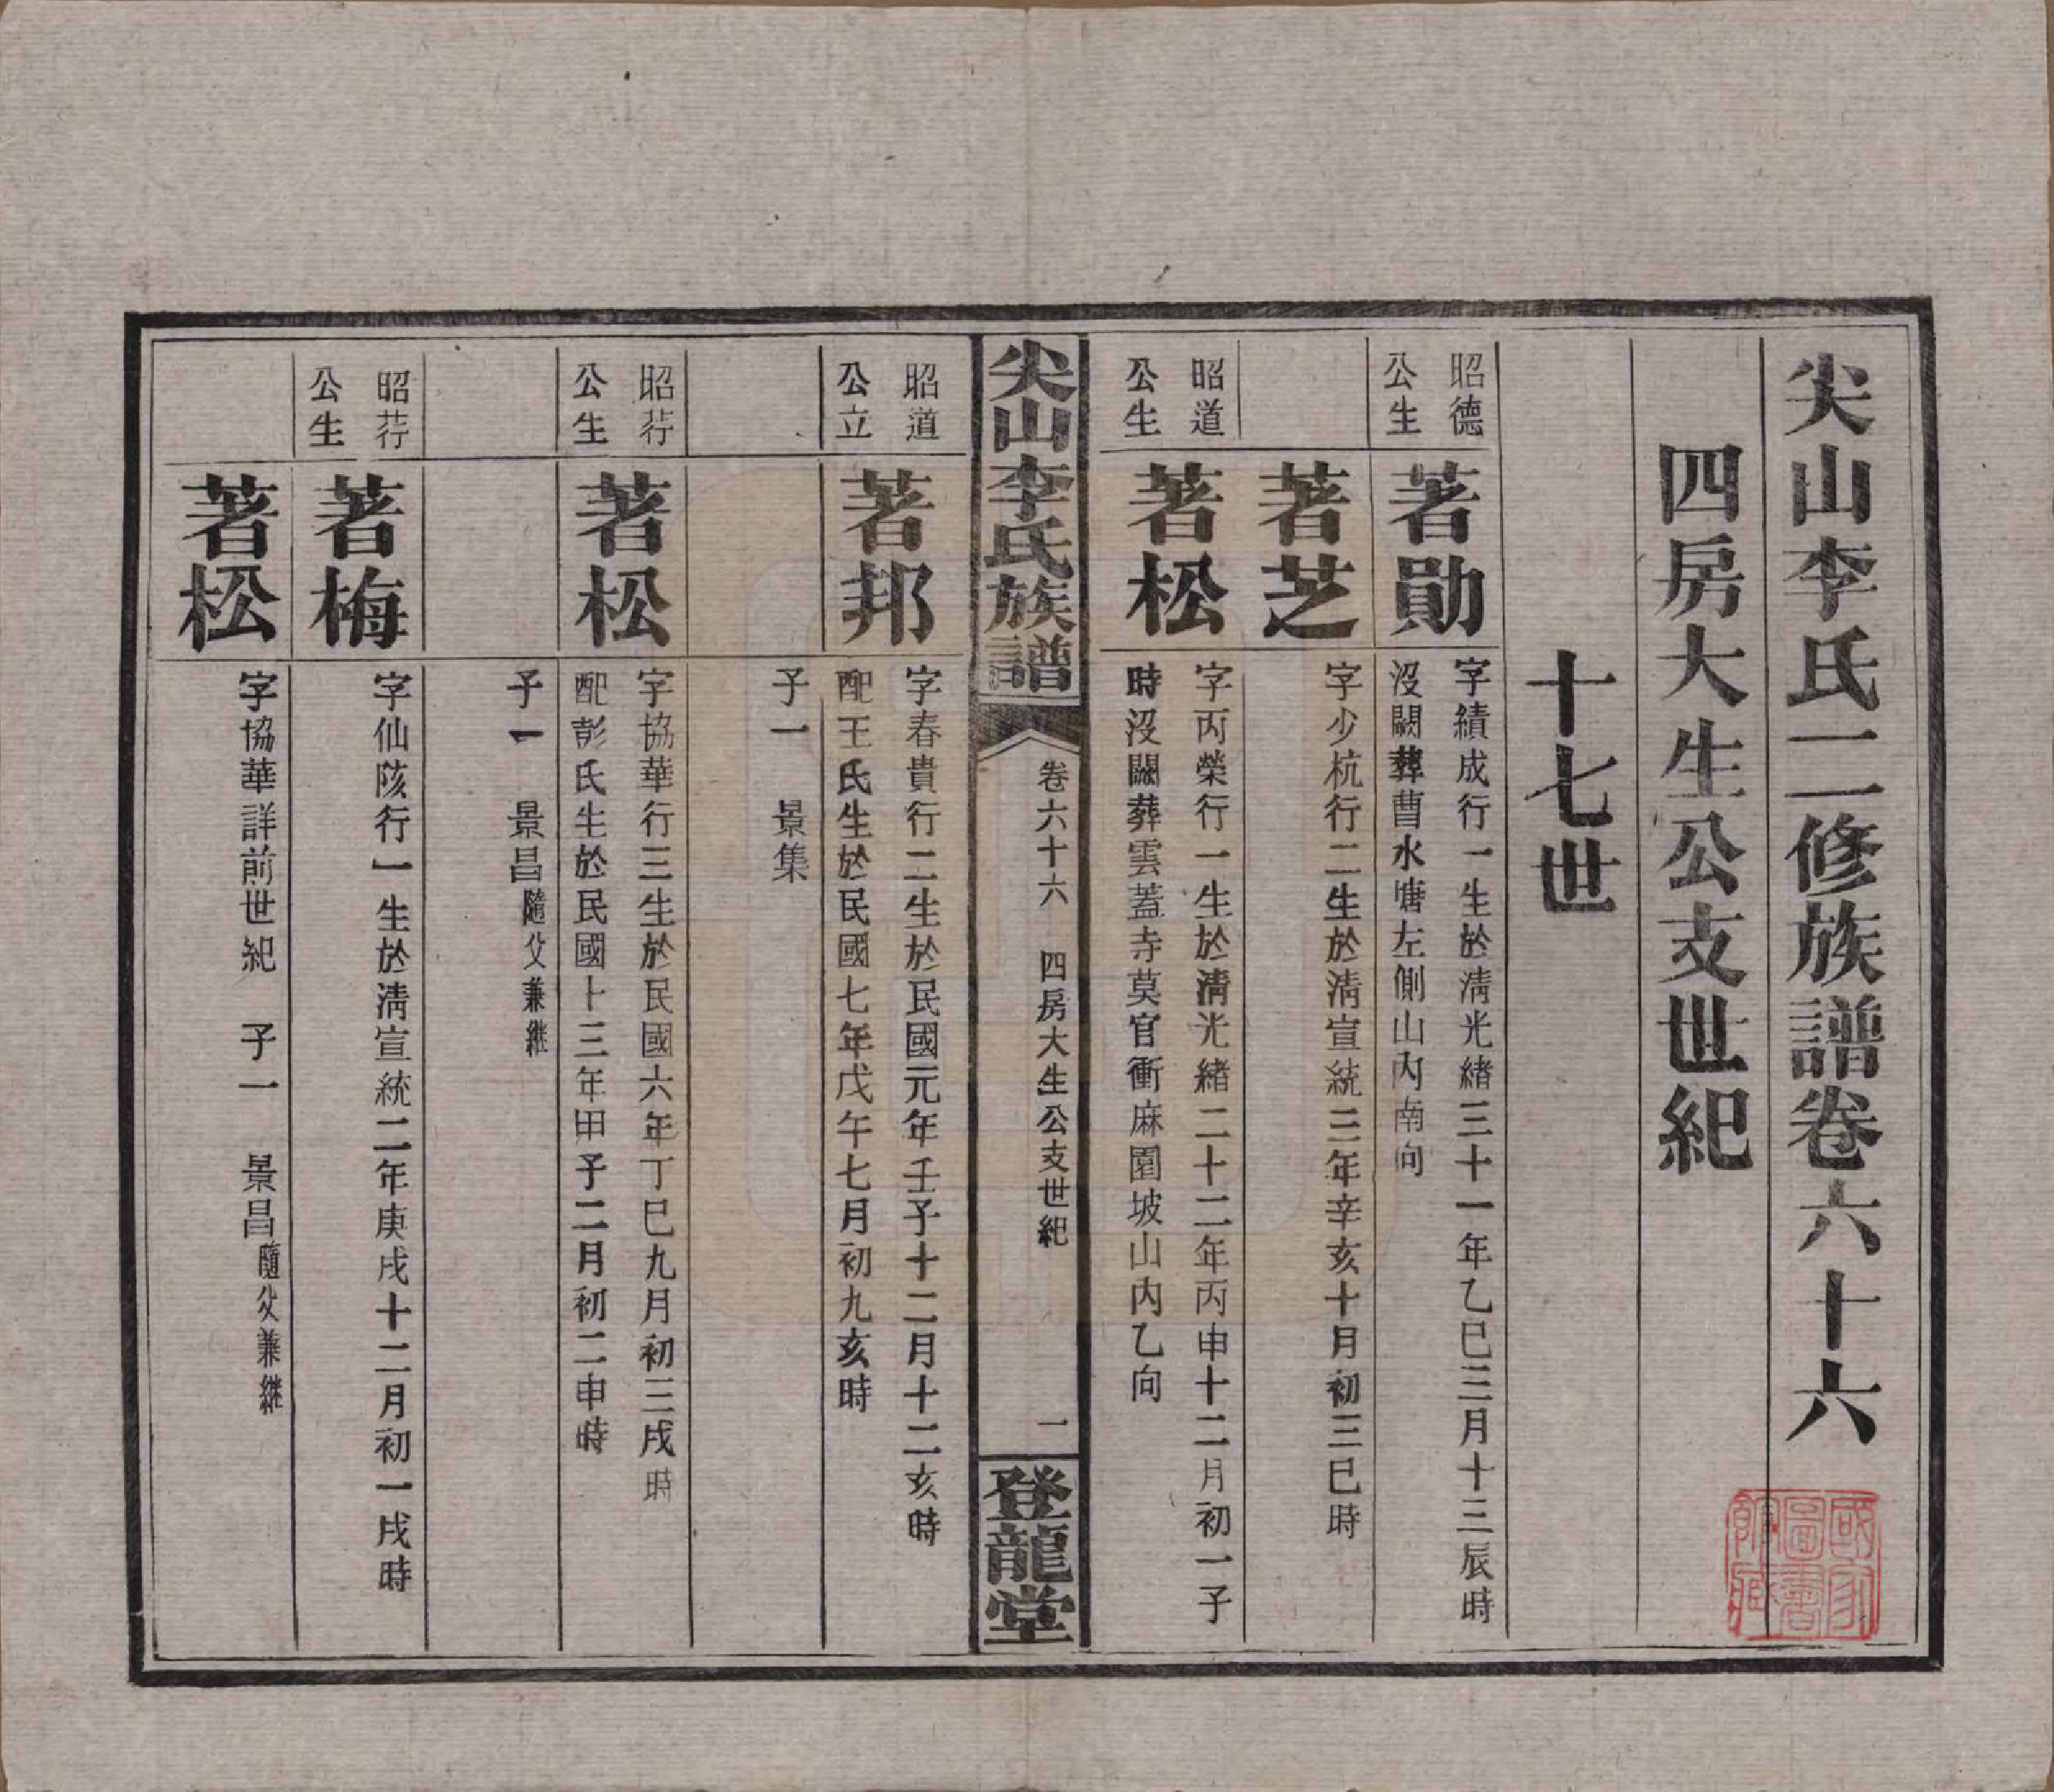 尖山李氏二修族譜卷六十六
四房大生公支世紀
十七世
昭德
公生
著勛
字績成行一生於淸光緖三十一年乙巳三月十三辰時
沒闕葬曹水塘左側山內南向
著芝
字少杭行二生於淸宣統三年辛亥十月初三巳時
昭道
公生
著松
字丙榮行一生於淸光緖二十二年丙申十二月初一子
時沒闕葬雲蓋寺莫官衝麻園坡山內乙向
尖山李氏族譜
卷六十六 四房大生公支世紀
一
登龍堂
昭道
公立
著邦
字春貴行二生於民國元年壬子十二月十二亥時
配王氏生於民國七年戊午七月初九亥時
子一 景集
昭荇
公生
著松
字協華行三生於民國六年丁巳九月初三戌時
配彭氏生於民國十三年甲子二月初二申時
子一 景昌隨父兼継
昭荇
公生
著梅
字仙陔行一生於淸宣統二年庚戌十二月初一戌時
著松
字協華詳前世紀 子一 景昌隨父兼継
國家
圖書
館藏